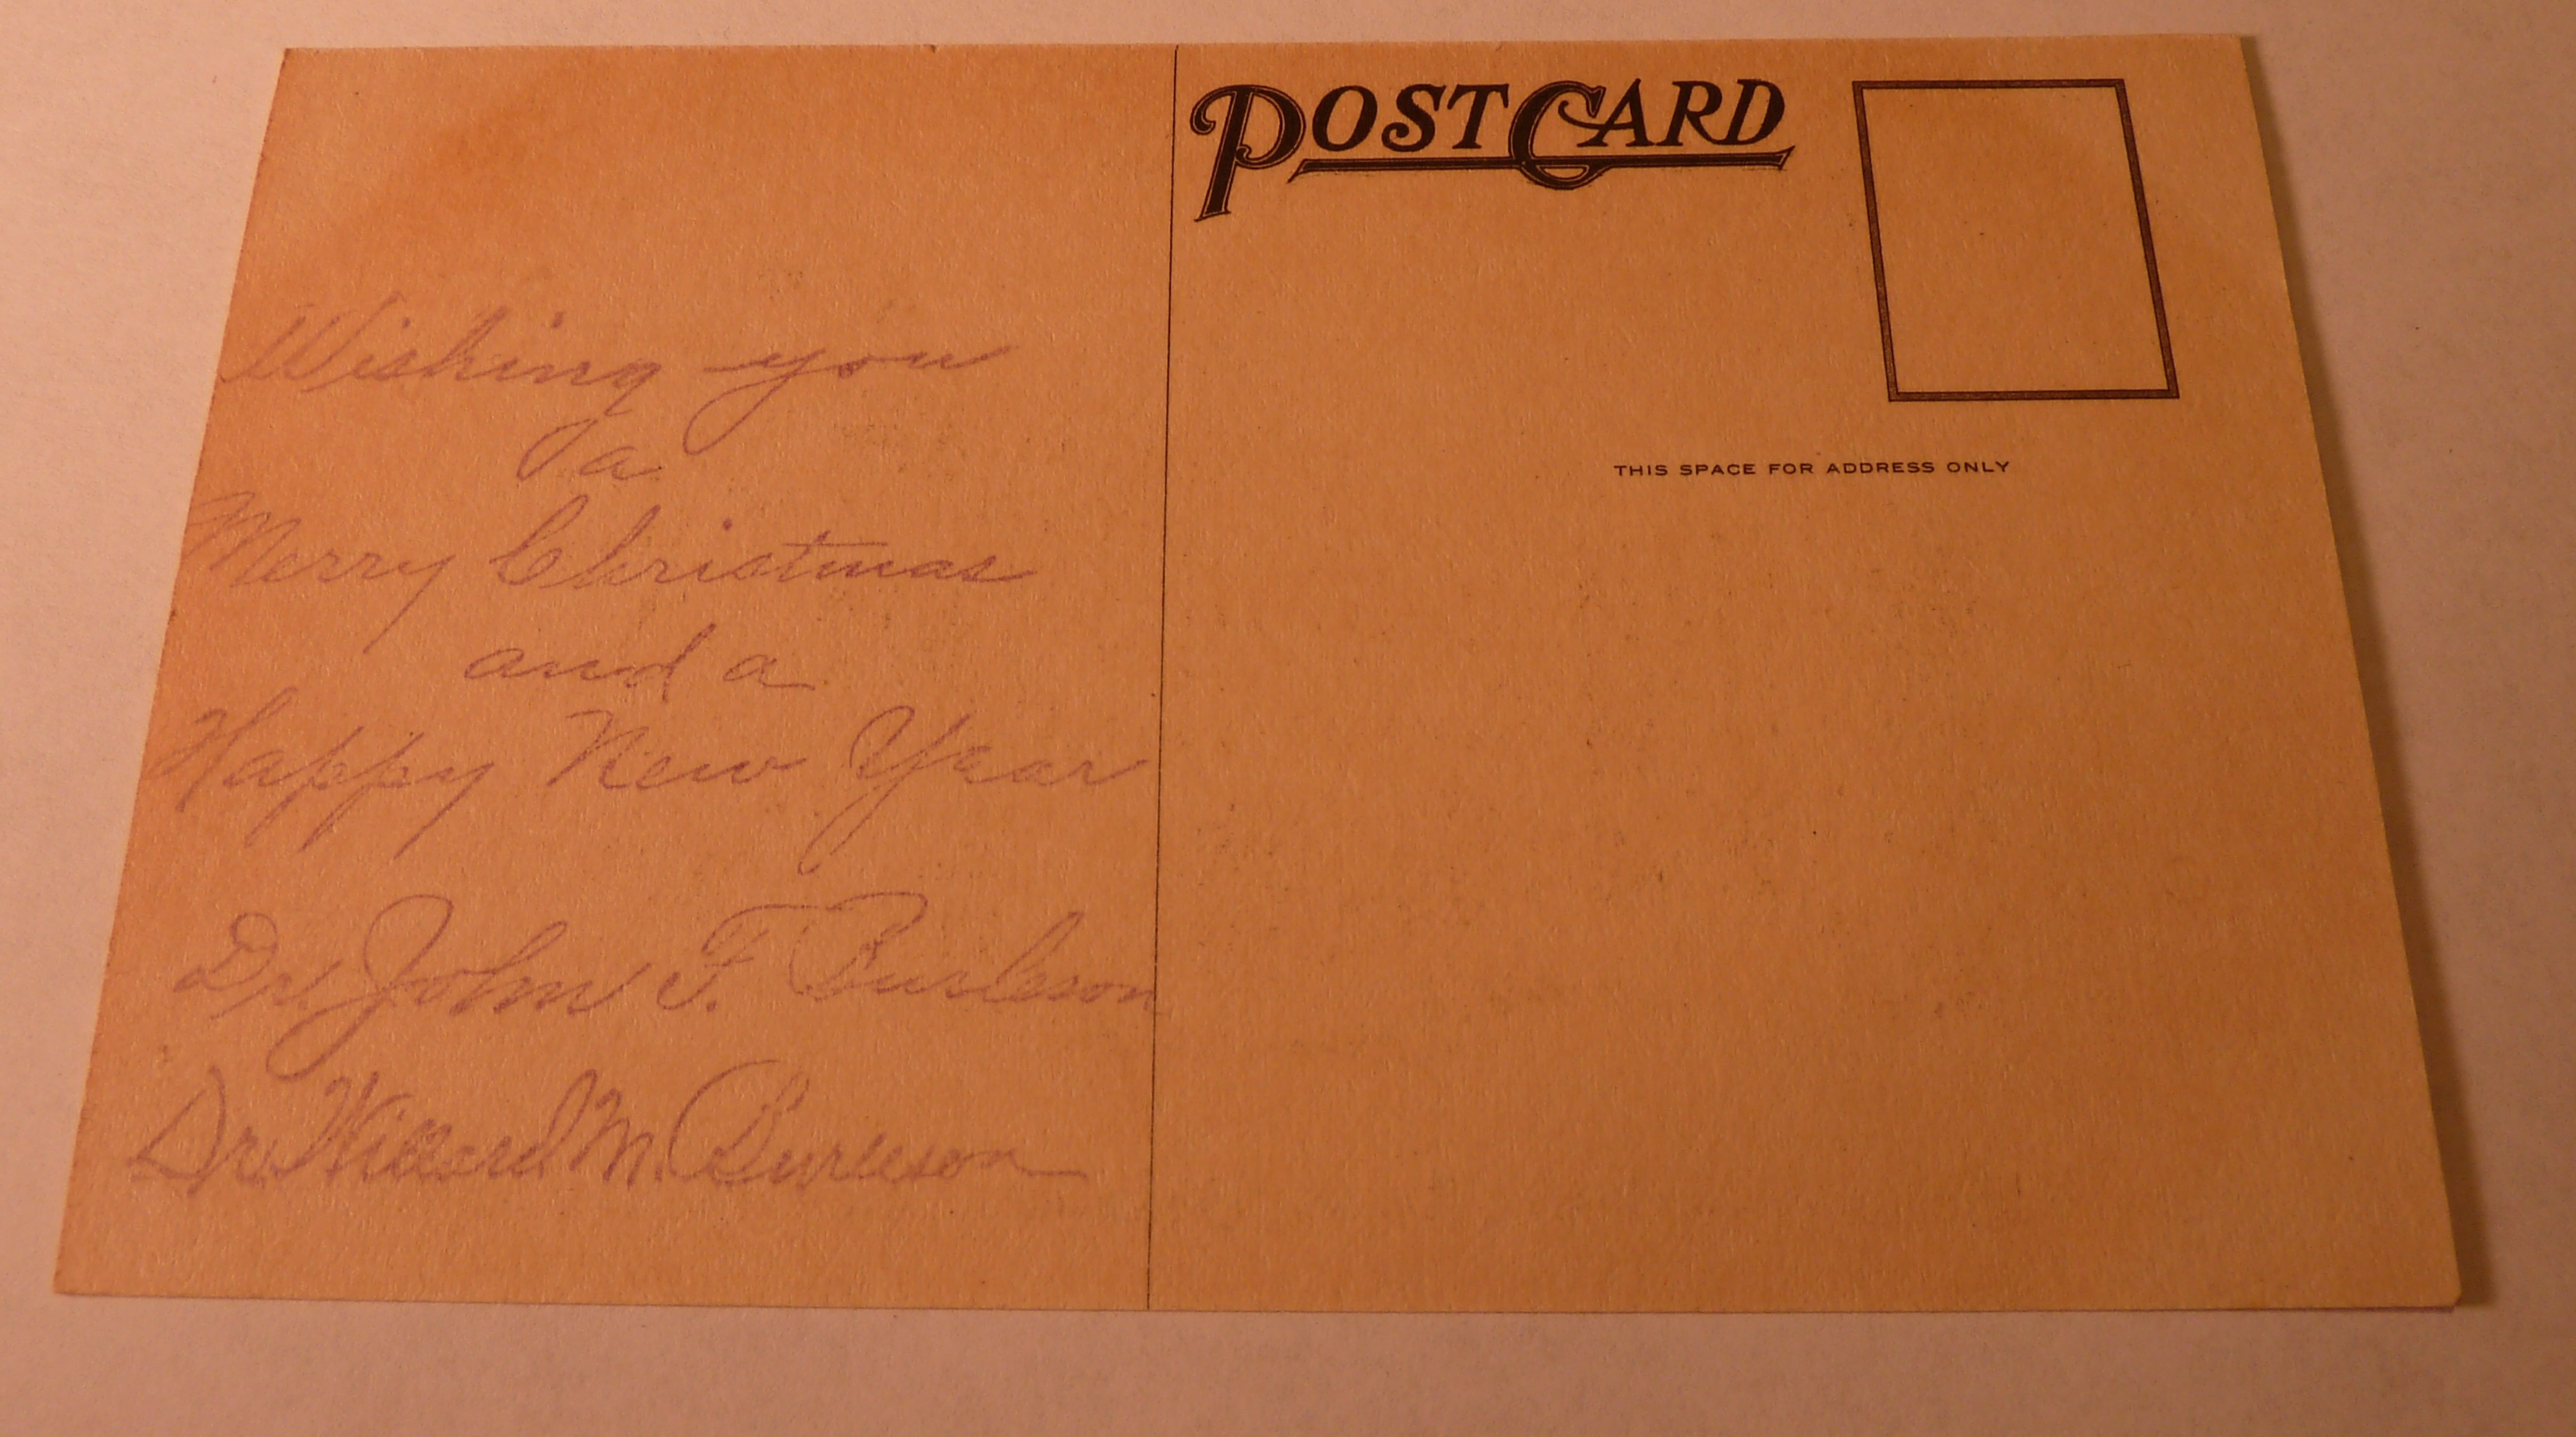 Wishing you
a
Merry Christmas
and a
Happy New Year
Dr. John F. Burleson
Dr. Willard M. Burleson
POST CARD
THIS SPACE FOR ADDRESS ONLY